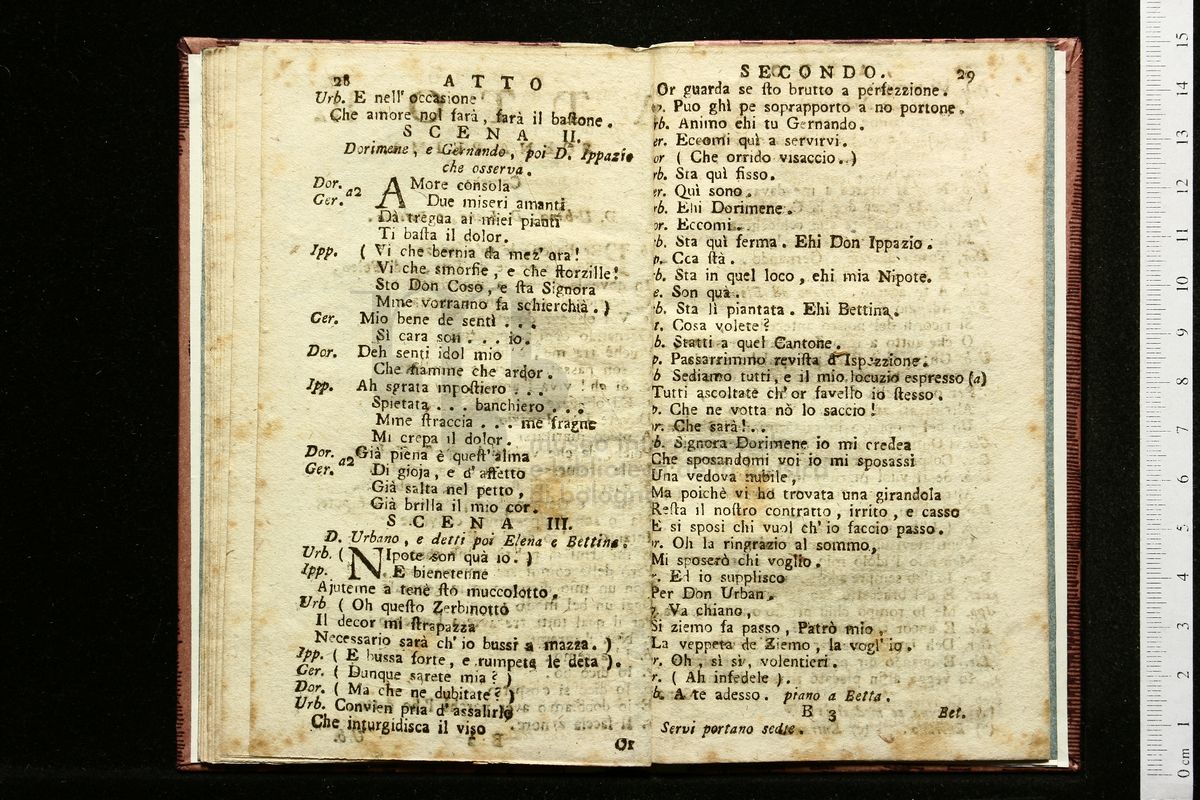 28 ATTO
Urb. E nell' occasione
Che amore nol farà, farà il bastone.
SCENA II.
Dorimene, e Gernando, poi D. Ippazio
che osserva.
Dor. a2 AMore consola
Ger. Due miseri amanti
Dà tregua ai miei pianti
Ti basta il dolor.
Ipp. ( Vi che bernia da mez' ora!
Vi che smorfie, e che storzille!
Sto Don Coso, e sta Signora
Mme vorranno fa schierchià. )
Ger. Mio bene de sentì . . .
Sì cara son . . . io.
Dor. Deh senti idol mio
Che fiamme che ardor.
Ipp. Ah sgrata mpostiero . . .
Spietata . . . banchiero . . .
Mme straccia . . . me fragne
Mi crepa il dolor.
Dor. a2 Già piena è quest' alma
Ger. Di gioja, e d' affetto
Già salta nel petto,
Già brilla il mio cor.
SCENA III.
D. Urbano, e detti poi Elena e Bettina.
Urb. ( NIpote son quà io. )
Ipp. E bienetenne
Ajuteme a tenè sto muccolotto.
Urb ( Oh questo Zerbinotto
Il decor mi strapazza
Necessario sarà ch' io bussi a mazza. )
Ipp. ( E bussa forte, e rumpeta le deta ).
Ger. ( Dunque sarete mia? )
Dor. ( Ma che ne dubitate? )
Urb. Convien pria d' assalirlo
Che inturgidisca il viso
Or
SECONDO. 29
Or guarda se sto brutto a perfezzione.
p. Puo ghì pe soprapporto a no portone.
rb. Animo ehi tu Gernando.
er. Eccomi quì a servirvi.
or ( Che orrido visaccio. )
rb. Sta quì fisso.
er. Quì sono.
rb. Ehi Dorimene.
or. Eccomi.
rb. Sta quì ferma. Ehi Don Ippazio.
p. Cca stà.
b. Sta in quel loco, ehi mia Nipote.
e. Son quà.
b. Sta lì piantata. Ehi Bettina.
t. Cosa volete?
b. Statti a quel Cantone.
p. Passarrimmo revista d' Ispezzione.
b Sediamo tutti, e il mio locuzio espresso (a)
Tutti ascoltate ch' or favello io stesso.
p. Che ne votta nò lo saccio!
r. Che sarà! . .
b. Signora Dorimene io mi credea
Che sposandomi voi io mi sposassi
Una vedova nubile,
Ma poichè vi ho trovata una girandola
Resta il nostro contratto, irrito, e casso
E si sposi chi vuol ch' io faccio passo.
r. Oh la ringrazio al sommo,
Mi sposerò chi voglio.
r. Ed io supplisco
Per Don Urban.
p. Va chiano,
Si ziemo fa passo, Patrò mio,
La veppeta de Ziemo, la vogl' io.
r. Oh, sì sì, volentieri.
r. ( Ah infedele ).
b. A te adesso. piano a Betta.
B 3 Bet.
Servi portano sedie.